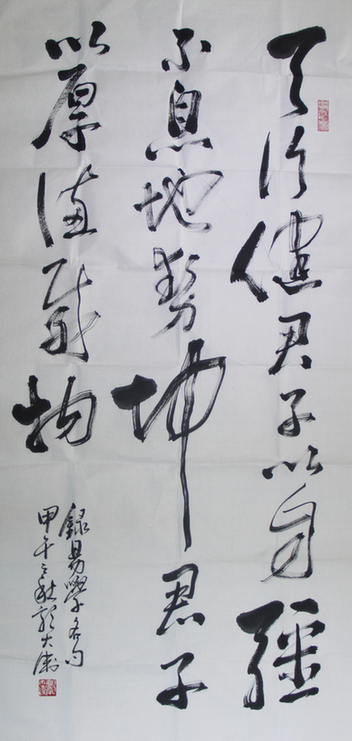 天行健君子以自彊
不息地势坤君子
以厚德载物
錄易學名句
甲午之秋彭大